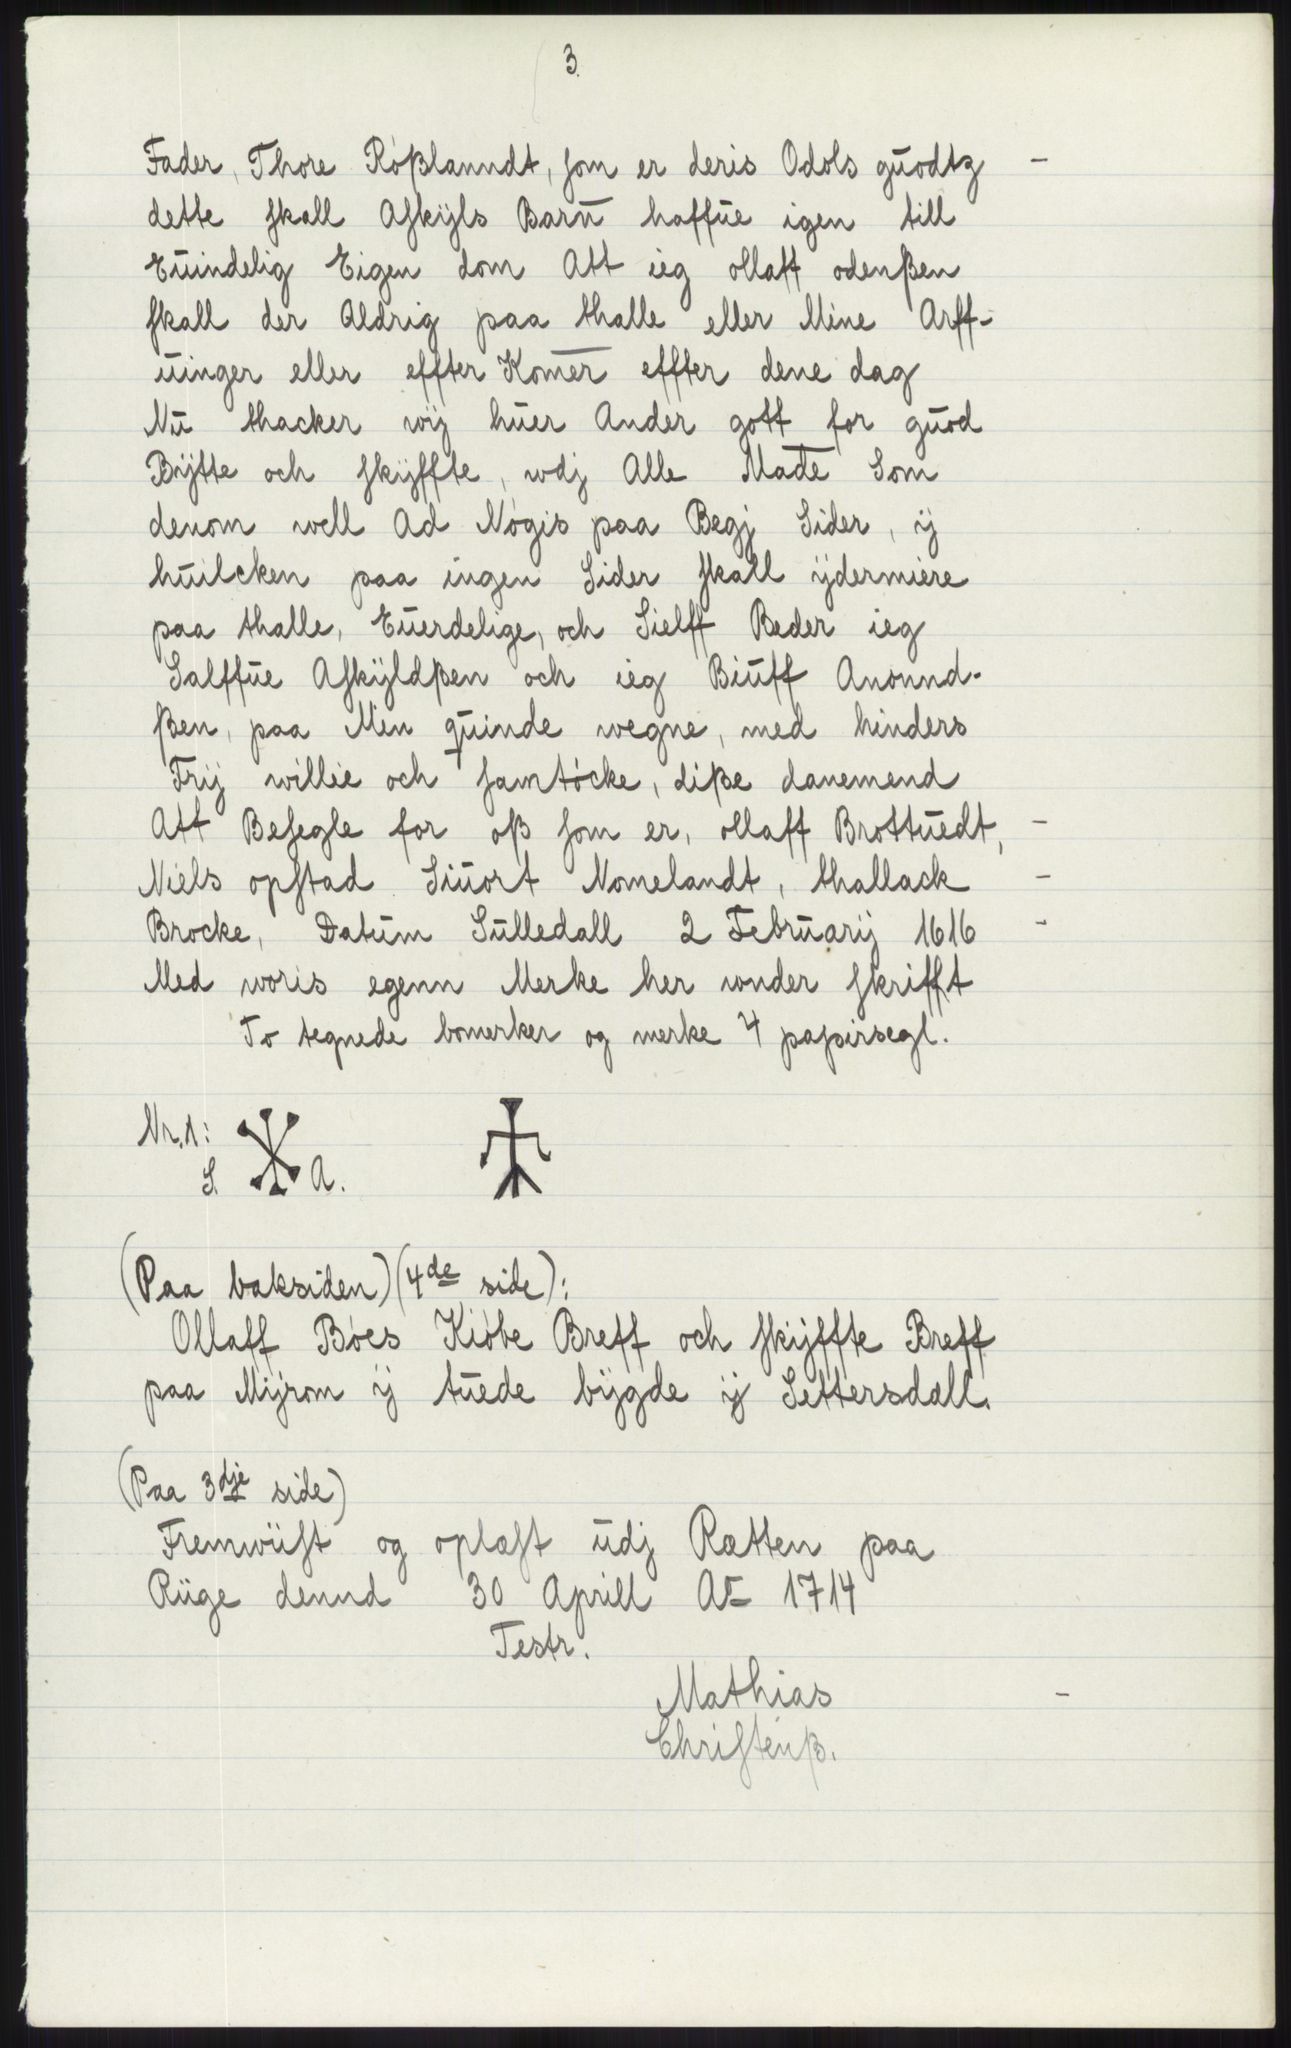 3.
Fader, Thore Rößlanndt, som er deris Odols guodtz —
dette skall Askÿls Barn̄ haffŭe igen till
Eŭindelig Eigen dom Att ieg ollaff odenßen
skall der Aldrig paa thalle eller Mine Arff-
ŭinger eller effter Kom̄er effter dene dag
Nŭ thacker wÿ hŭer Ander gott for gŭod
Bÿtte och skÿffte, wdj Alle Made Som
denom well Ad Nógis paa Begj Sider, ÿ
hŭilcken paa ingen Sider skall ÿdermiere
paa thalle, Eŭerdelige, och Sielff Beder ieg
Salffŭe Askÿldßen och ieg Biŭff Anonnd-
ßen, paa Min qŭinde wegne, med hinders
Frij willie och samtócke, diße danemend
Att Besegle for oß som er, ollaff Brottŭedt, —
Niels opstad Siŭort Nomelandt, thallack —
Brocke, Datŭm Sŭlledall 2 Febrŭarij 1616 -
Med woris egenn Merke her wnder skrifft
To tegnede bomerker og merke 4 papirsegl.
Nr. 1:
S. A.
(Paa baksiden) (4de side):
Ollaff Bóes Kióbe Breff och skÿffte Breff
paa Mÿrom ÿ tŭede bÿgde ÿ Settersdall.
(Paa 3dje side)
Fremwiist og oplæst ŭdj Rætten paa
Rüge dennd 30 Aprill Ao 1714
Testr.
Mathias —
Christenß.